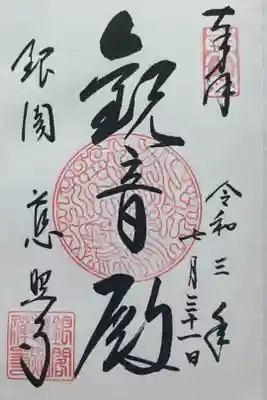 奉拝
令和三年
七月三十一日
観音殿
銀閣 慈照寺